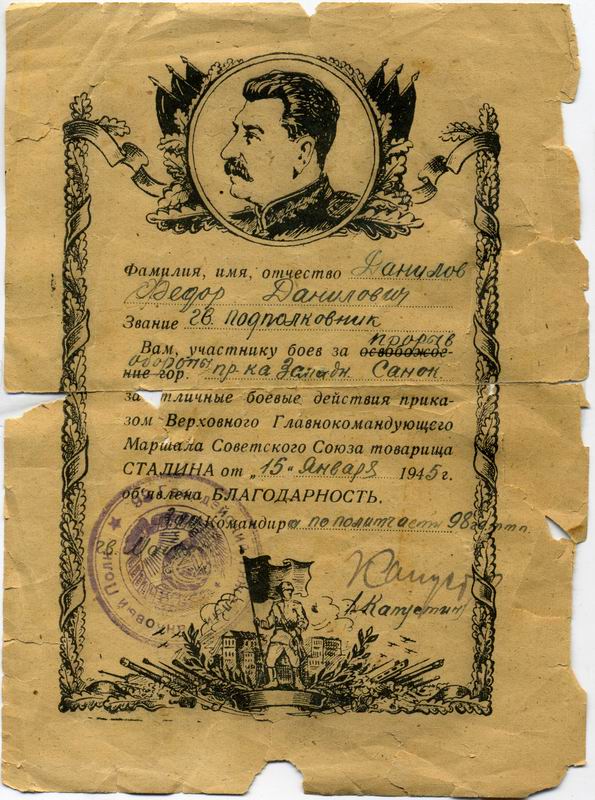 Фамилия, имя, отчество Данилов
Федор Данилович
Звание гв. подполковник
прорыв
Вам, участнику боев за освобожде-
обороны
ние гор. пр-ка Западн. Санок
за отличные боевые действия прика-
зом Верховного Главнокомандующего
Маршала Советского Союза товарища
СТАЛИНА от „15“ Января 1945 г.
объявлена БЛАГОДАРНОСТЬ.
Зам. Командира по политчасти 98
гв. Майор
/Капустин/